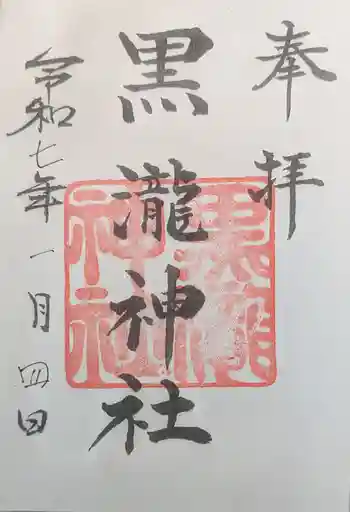 奉拝
黒瀧神社
黒瀧神社
令和七年一月四日